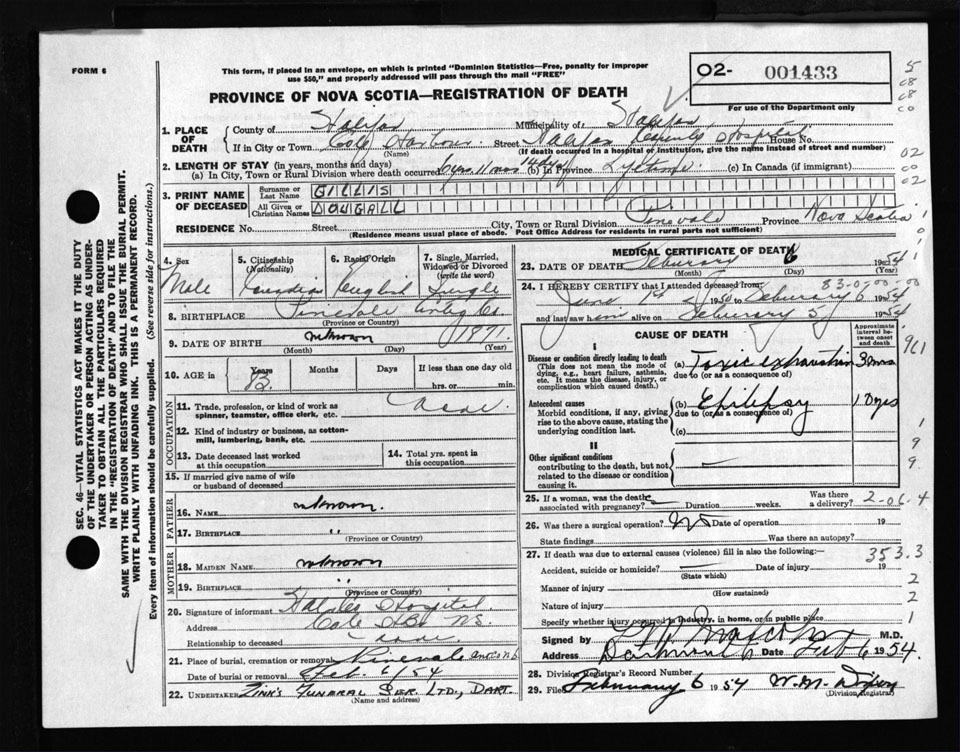 FORM 6
This form, if placed in an envelope, on which is printed "Dominion Statistics—Free, penalty for improper
use $50," and properly addressed will pass through the mail "FREE"
PROVINCE OF NOVA SCOTIA—REGISTRATION OF DEATH
02- 001433
For use of the Department only
1. PLACE OF DEATH
County of Halifax Municipality of Halifax
If in City or Town Cole Harbour Street Halifax County Hospital House No.
(Name) (If death occurred in a hospital or institution, give the name instead of street and number)
2. LENGTH OF STAY (in years, months and days)
(a) In City, Town or Rural Division where death occurred 6 yrs 11 mos 14 dys (b) In Province Lifetime (c) In Canada (if immigrant)
3. PRINT NAME OF DECEASED
Surname or Last Name GILLIS
All Given or Christian Names DOUGALL
RESIDENCE No. Street City, Town or Rural Division Province Nova Scotia
(Residence means usual place of abode. Post Office Address for residents in rural parts not sufficient)
4. Sex Male
5. Citizenship (Nationality) Canadian
6. Racial Origin English
7. Single, Married, Widowed or Divorced (write the word) Single
8. BIRTHPLACE Pinevale Antig Co.
(Province or Country)
9. DATE OF BIRTH unknown 1871
(Month) (Day) (Year)
10. AGE in Years Months Days If less than one day
82 hrs. or min.
OCCUPATION
11. Trade, profession, or kind of work as
spinner, teamster, office clerk, etc. none.
12. Kind of industry or business, as cotton-
mill, lumbering, bank, etc.
13. Date deceased last worked
at this occupation
14. Total yrs. spent in
this occupation
15. If married give name of wife
or husband of deceased
FATHER
16. NAME unknown
17. BIRTHPLACE "
(Province or Country)
MOTHER
18. MAIDEN NAME unknown
19. BIRTHPLACE "
(Province or Country)
20. Signature of informant Halifax Co Hospital.
Address Cole Hbr NS.
Relationship to deceased none.
21. Place of burial, cremation or removal Pinevale
Date of burial or removal Feb. 6/54
22. UNDERTAKER ZINK'S FUNERAL SER. LTD., DART.
MEDICAL CERTIFICATE OF DEATH
23. DATE OF DEATH February 6 1954
(Month) (Day) (Year)
83-0-00-00
24. I HEREBY CERTIFY that I attended deceased from:
June 1st 1950 to February 6 1954
and last saw him alive on February 5 1954
CAUSE OF DEATH
Approximate interval between onset and death
I
Disease or condition directly leading to death
(This does not mean the mode of dying, e.g., heart failure, asthenia, etc. It means the disease, injury, or complication which caused death.)
(a) Toxic exhaustion 3 mos
due to (or as a consequence of)
Antecedent causes
Morbid conditions, if any, giving rise to the above cause, stating the underlying condition last.
(b) Epilepsy
due to (or as a consequence of)
(c)
II
Other significant conditions
contributing to the death, but not related to the disease or condition causing it.
25. If a woman, was the death
associated with pregnancy? Duration weeks. Was there a delivery? 2-06-4
26. Was there a surgical operation? No Date of operation 19
State findings Was there an autopsy?
27. If death was due to external causes (violence) fill in also the following: 353.3
Accident, suicide or homicide? Date of injury 19
(State which)
Manner of injury
(How sustained)
Nature of injury
Specify whether injury occurred in industry, in home, or in public place
Signed by M.D.
Address Dartmouth Date Feb 6 1954.
28. Division Registrar's Record Number
29. Filed February 6 1954
(Division Registrar)
SEC. 46—VITAL STATISTICS ACT MAKES IT THE DUTY
OF THE UNDERTAKER OR PERSON ACTING AS UNDER-
TAKER TO OBTAIN ALL THE PARTICULARS REQUIRED
IN THE "REGISTRATION OF DEATH" AND TO FILE THE
SAME WITH THE DIVISION REGISTRAR WHO SHALL ISSUE THE BURIAL PERMIT.
WRITE PLAINLY WITH UNFADING INK. THIS IS A PERMANENT RECORD.
Every item of information should be carefully supplied. (See reverse side for instructions.)